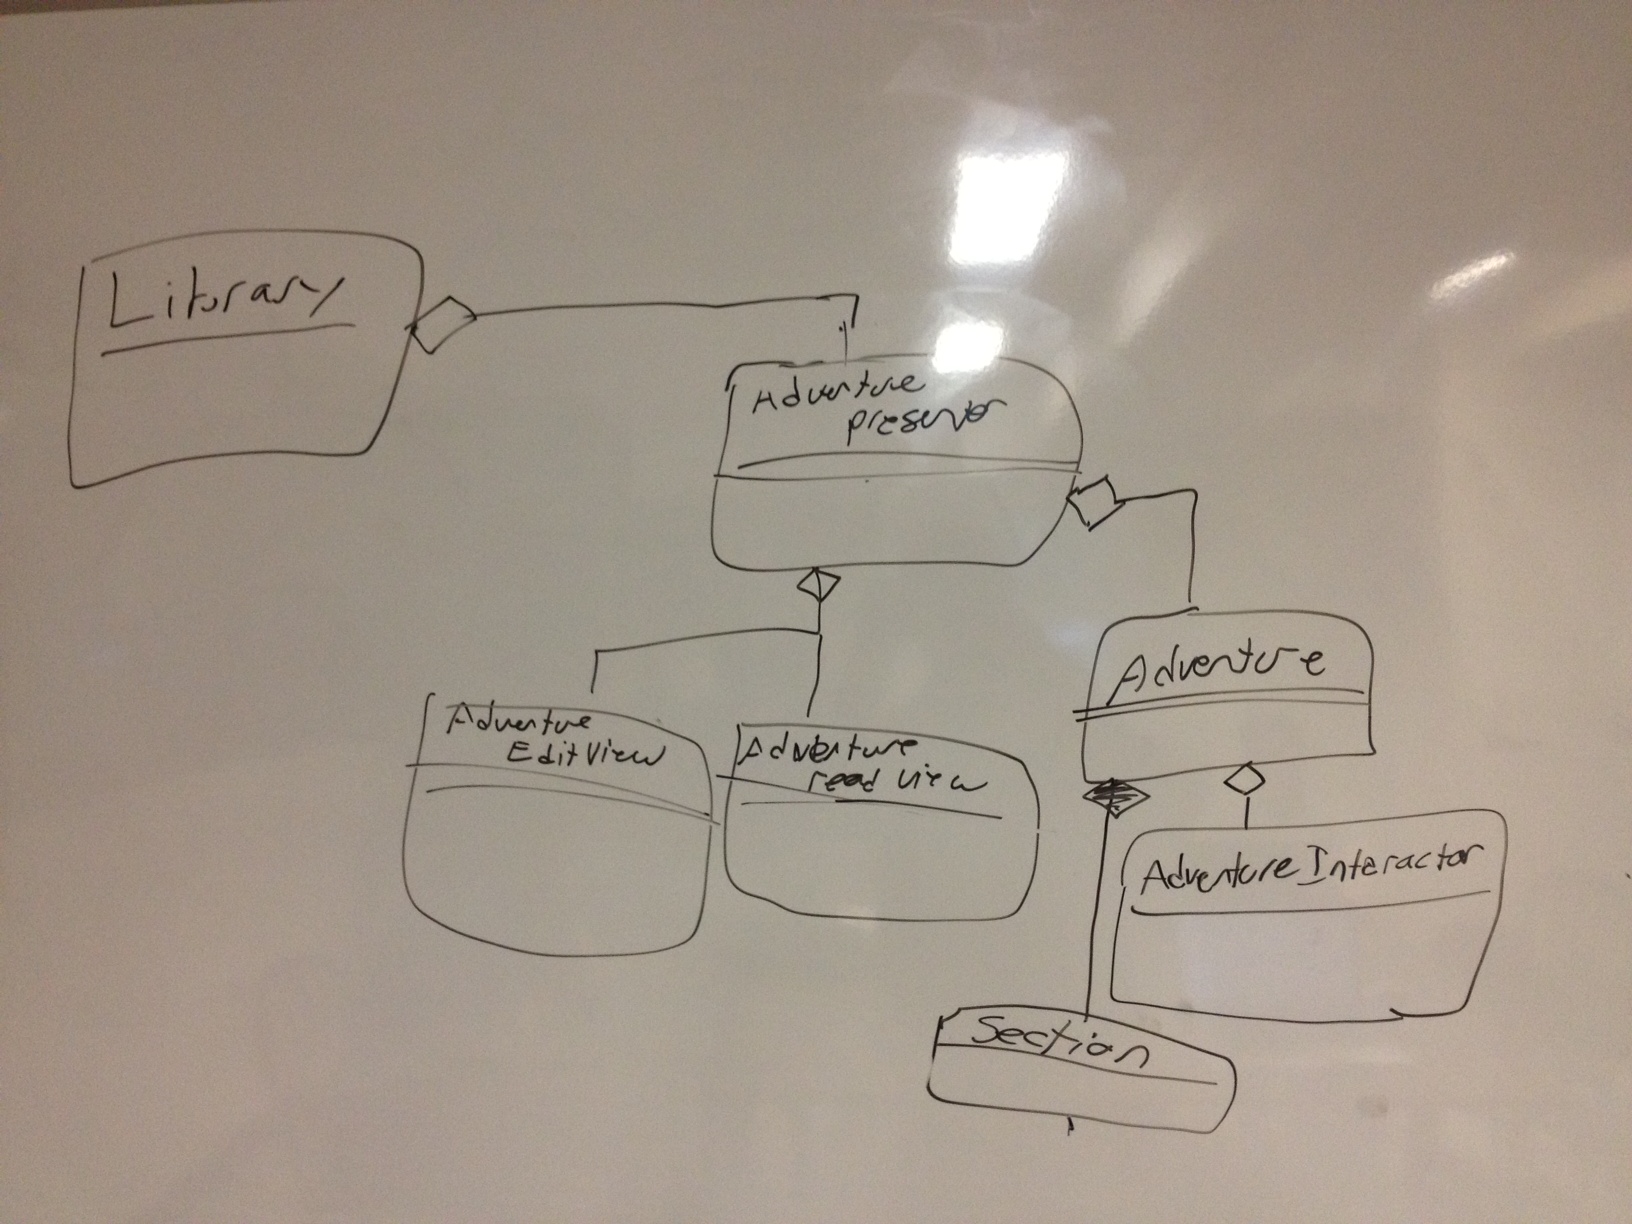 Library
Adventure
presenter
Adventure
Adventure
EditView
Adventure
read view
Adventure Interactor
Section